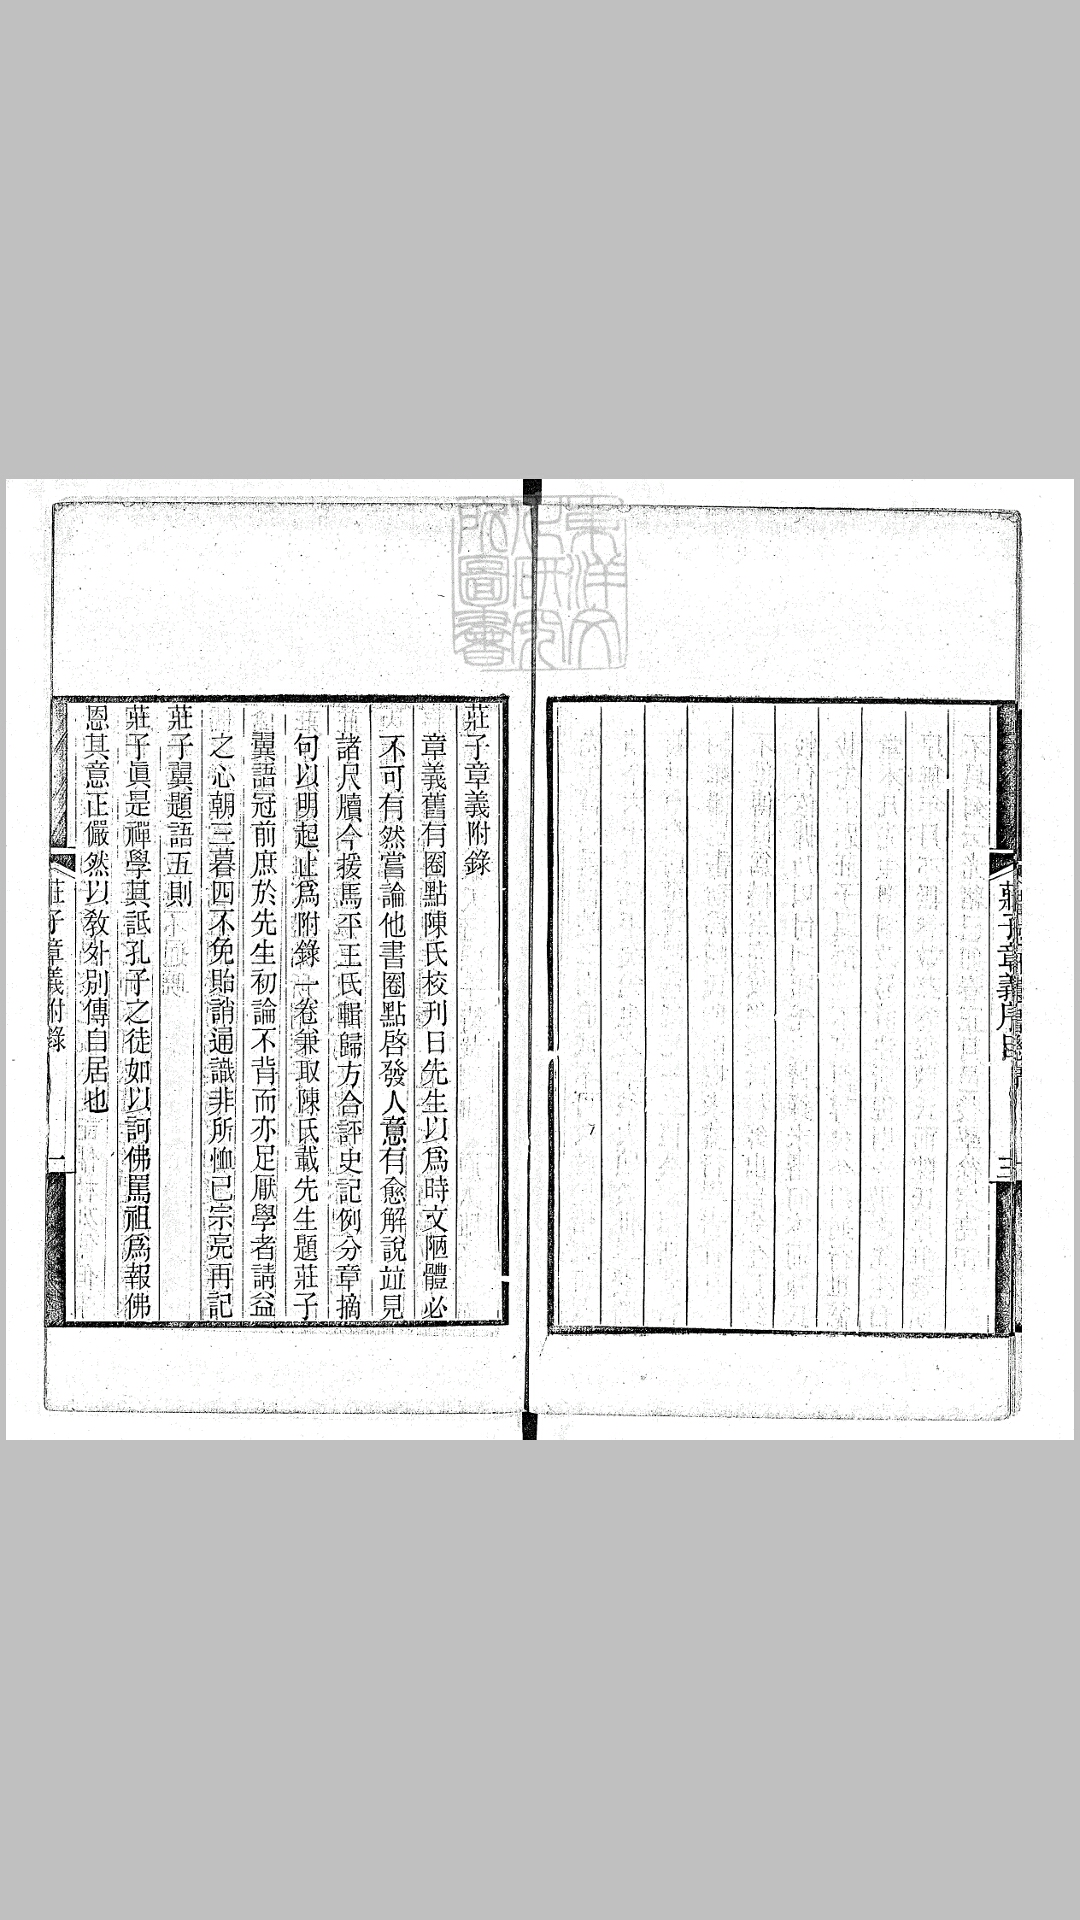 莊子章義附錄
章義舊有圈點陳氏校刊日先生以爲時文陋體必
不可有然嘗論他書圈點啓發人意有愈解說竝見
諸尺牘今援馬平王氏輯歸方合評史記例分章摘
句以明起止爲附錄一卷兼取陳氏載先生題莊子
翼語冠前庶於先生初論不背而亦足厭學者請益
之心朝三暮四不免貽誚通識非所恤已宗亮再記
莊子翼題語五則
莊子眞是禪學其詆孔子之徒如以訶佛罵祖爲報佛
恩其意正儼然以教外別傳自居也
莊子章義附錄
一
三